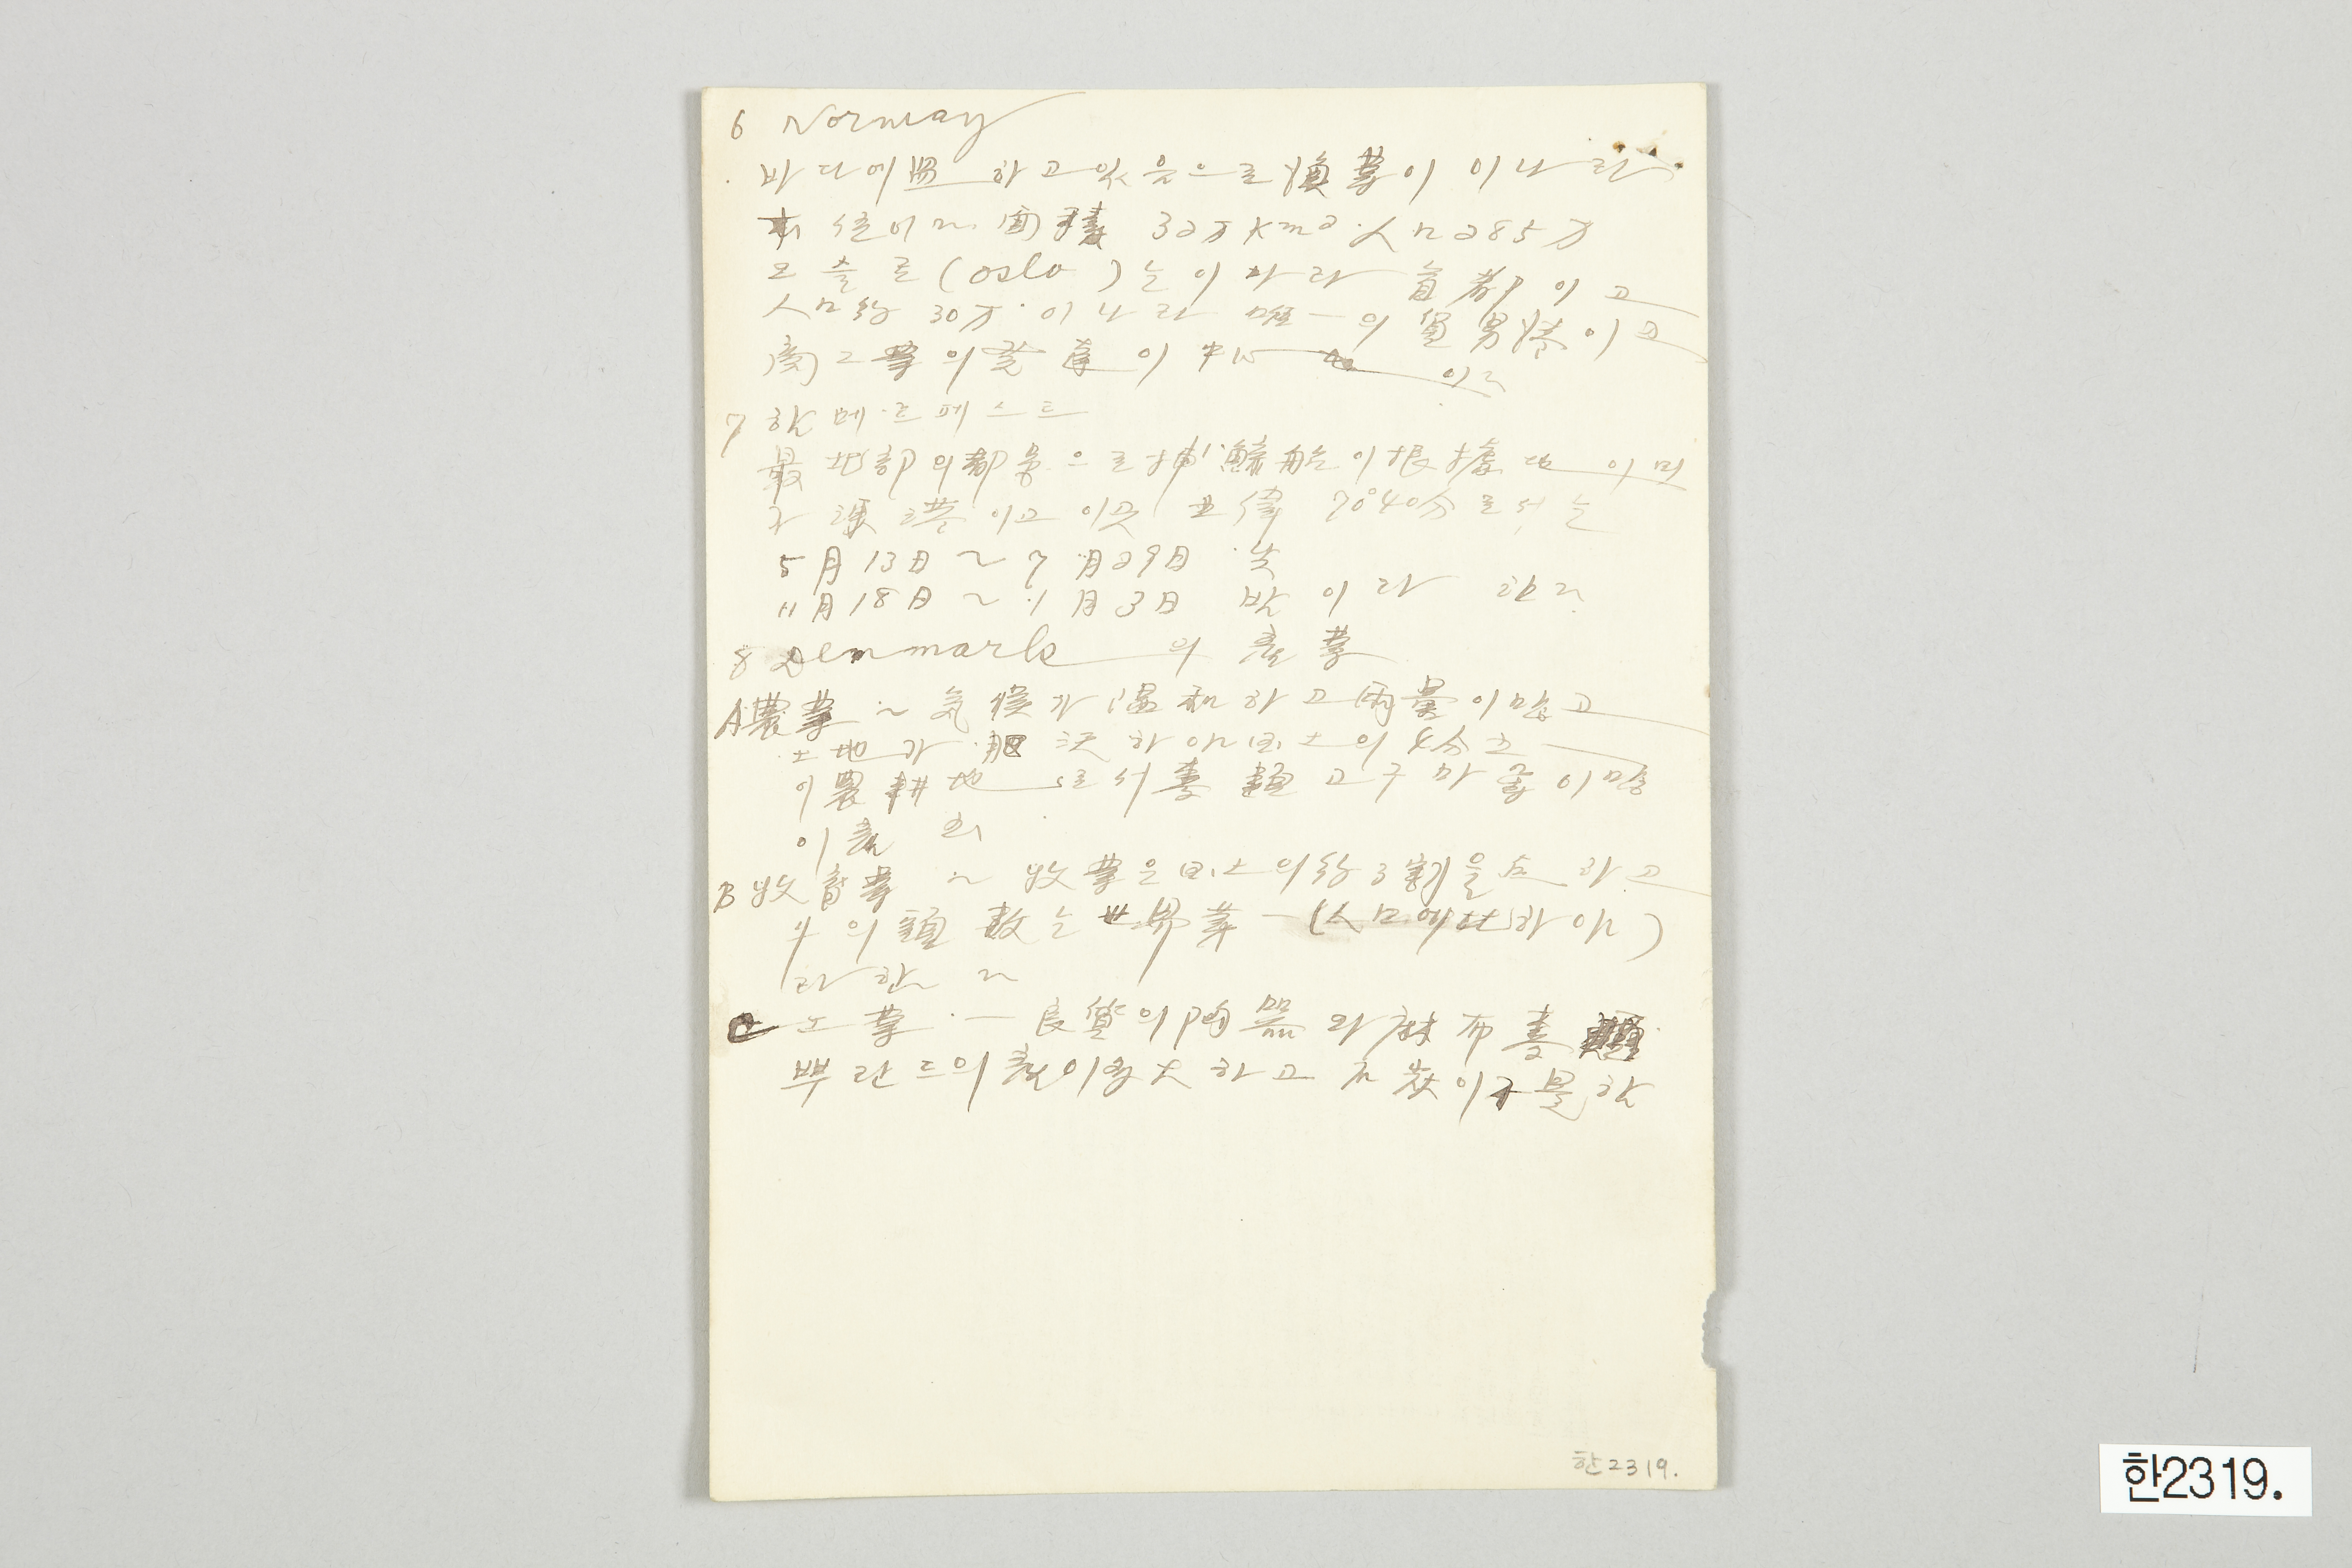 6 Norway
바다에 하고 있음으로 漁業이 이나라
面積 32万 Km2 人口 285万
오슬로 (oslo) 는 이나라 首都이고
人口約 30万 이나라 唯一의 이고
商工業의 發達이 中心地이다
7 함메르페스트
最北部의 都市으로 捕鯨船이 根據地이며
港이고 이곳 北緯 70°40分로서는
5月13日 ~ 7月29日 낮
11月18日 ~ 1月3日 밤이라 한다
8 Denmark의 産業
A 農業 ~ 気候가 温和하고 雨量이 많고
土地가 肥沃하야 国土의 4分之
이 農耕地로서 麥類 고구마 等이 많
이 産
B 牧畜業 ~ 牧業은 国土의 約 3割을 占하고
牛의 頭数는 世界第一 (人口에 比하야)
라 한다
C 工業 — 良質의 陶器와 麻布 麥
뿌란드의 産이 多大하고 이 不足한
한2319.
한2319.